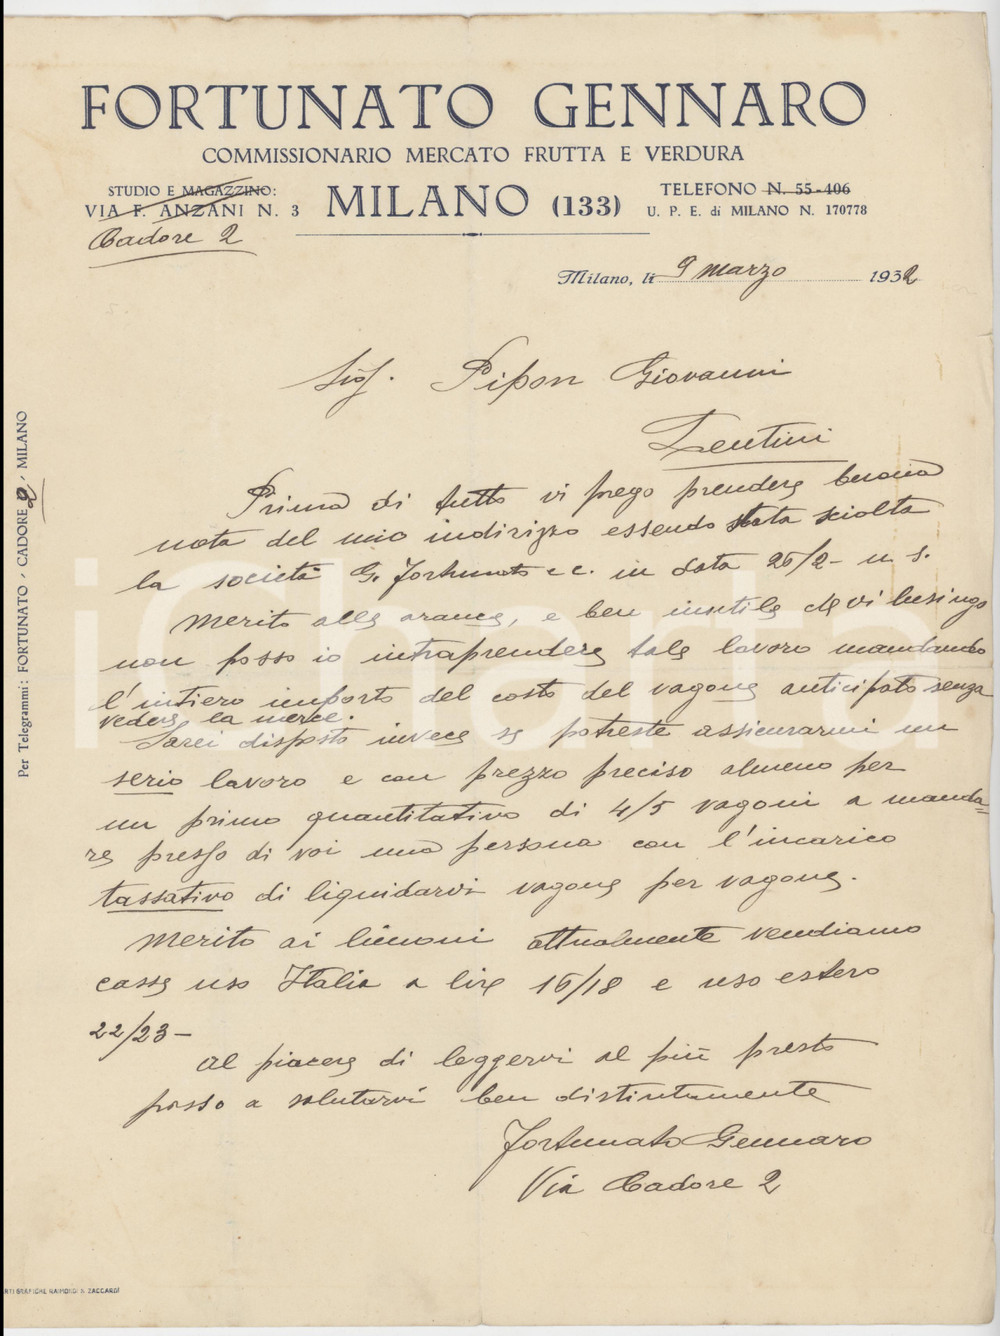 FORTUNATO GENNARO
COMMISSIONARIO MERCATO FRUTTA E VERDURA
STUDIO E MAGAZZINO:
VIA F. ANZANI N. 3
Cadore 2
MILANO (133)
TELEFONO N. 55-406
U. P. E. di MILANO N. 170778
Milano, li 9 marzo 1932
Sig. Pipon Giovanni
Lentini
Prima di tutto vi prego prendere buona
nota del mio indirizzo essendo stata sciolta
la società G. Fortunato e c. in data 26/2- u. s.
Merito alle arance, e ben inutile che vi lusingo
non posso io intraprendere tale lavoro mandando
l'intiero importo del costo del vagone anticipato senza
vedere la merce.
Sarei disposto invece se potreste assicurarmi un
serio lavoro e con prezzo preciso almeno per
un primo quantitativo di 4/5 vagoni a manda=
re presso di voi una persona con l'incarico
tassativo di liquidarvi vagone per vagone.
Merito ai limoni attualmente vendiamo
casse uso Italia a lire 16/18 e uso estero
22/23-
Al piacere di leggervi al più presto
posso a salutarvi ben distintamente
Fortunato Gennaro
Via Cadore 2
Per Telegrammi: FORTUNATO - CADORE 2 - MILANO
ARTI GRAFICHE RAIMONDI & ZACCARDI
iCharta